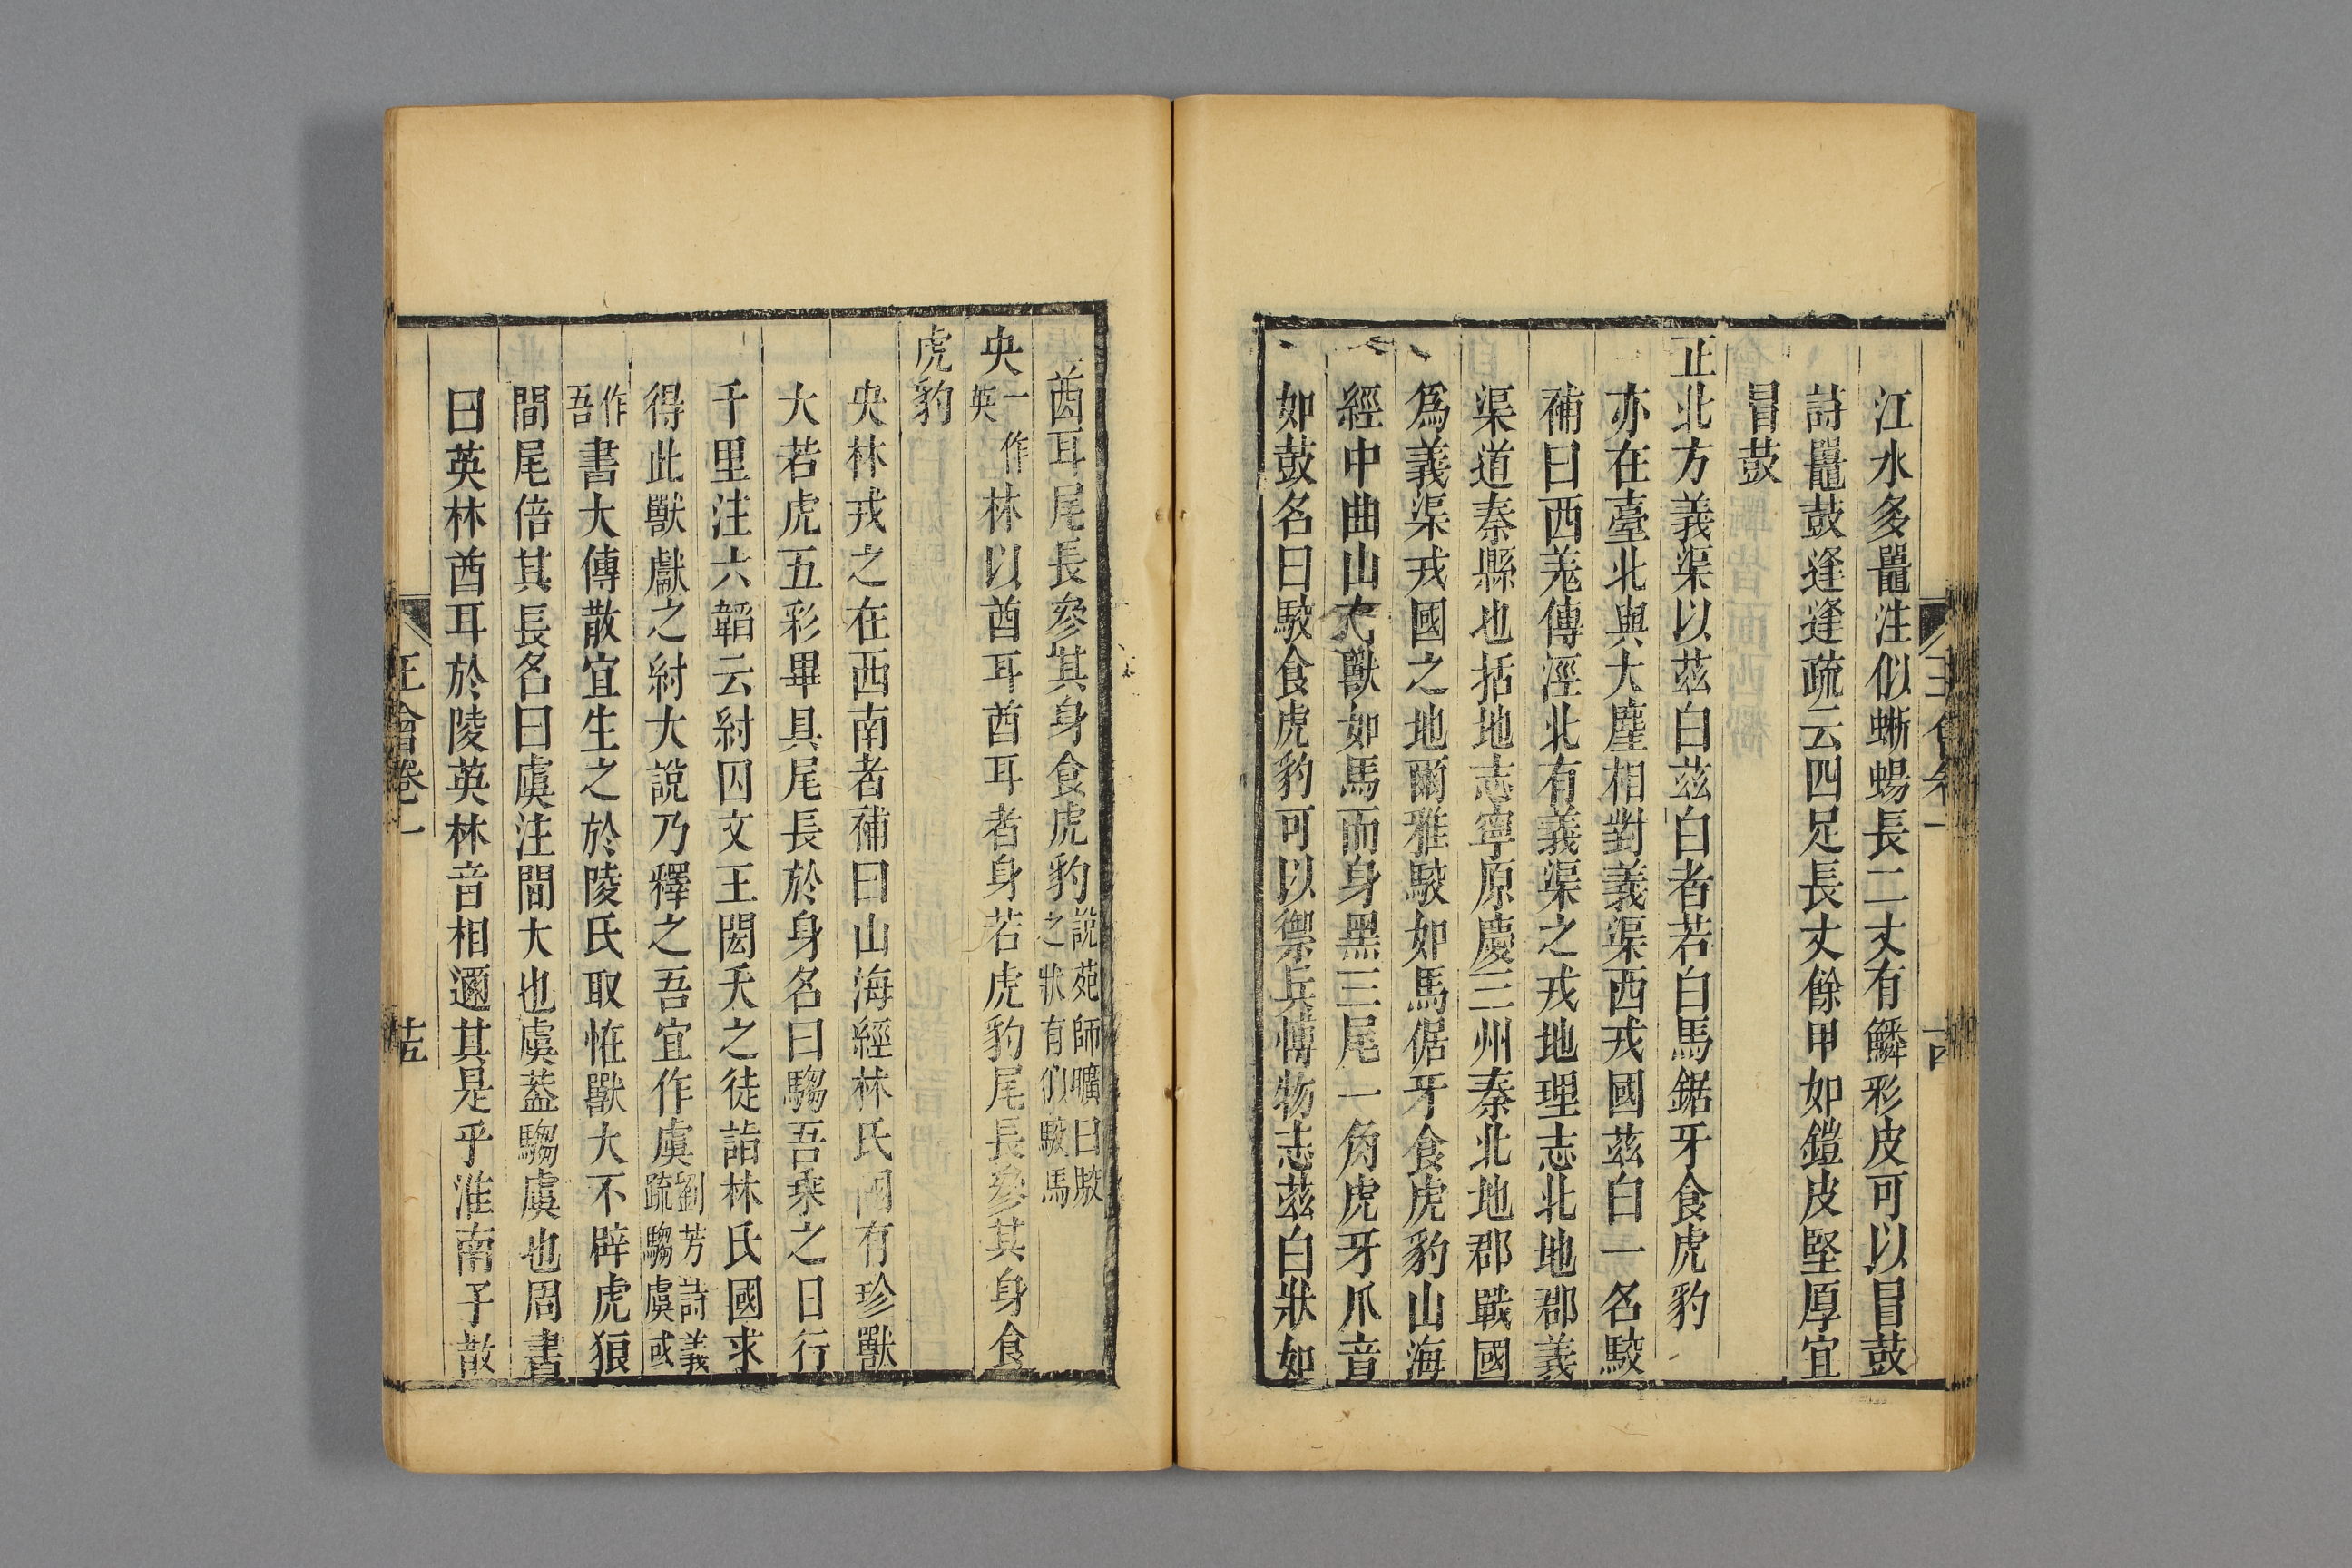 江水多鼉注似蜥蜴長二丈有鱗彩皮可以冒鼓
詩鼉鼓逢逢疏云四足長丈餘甲如鎧皮堅厚宜
冒鼓
正北方義渠以茲白茲白者若白馬鋸牙食虎豹
亦在臺北與大塵相對義渠西戎國茲白一名駮
補曰西羌傳涇北有義渠之戎地理志北地郡義
渠道秦縣也括地志寧原慶三州秦北地郡戰國
爲義渠戎國之地爾雅駮如馬倨牙食虎豹山海
經中曲山有獸如馬而身黑三尾一角虎牙爪音
如鼓名曰駮食虎豹可以禦兵博物志茲白狀如
酋耳尾長參其身食虎豹說苑師曠曰駮之狀有似駮馬
央一作英林以酋耳酋耳者身若虎豹尾長參其身食
虎豹
央林戎之在西南者補曰山海經林氏國有珍獸
大若虎五彩畢具尾長於身名曰騶吾乘之日行
千里注六韜云紂囚文王閎夭之徒詣林氏國求
得此獸獻之紂大說乃釋之吾宜作虞劉芳詩義疏騶虞或
作吾書大傳散宜生之於陵氏取恠獸大不辟虎狼
間尾倍其長名曰虞注間大也虞葢騶虞也周書
曰英林酋耳於陵英林音相邇其是乎淮南子散
王會卷一
十四
王會卷一
十五